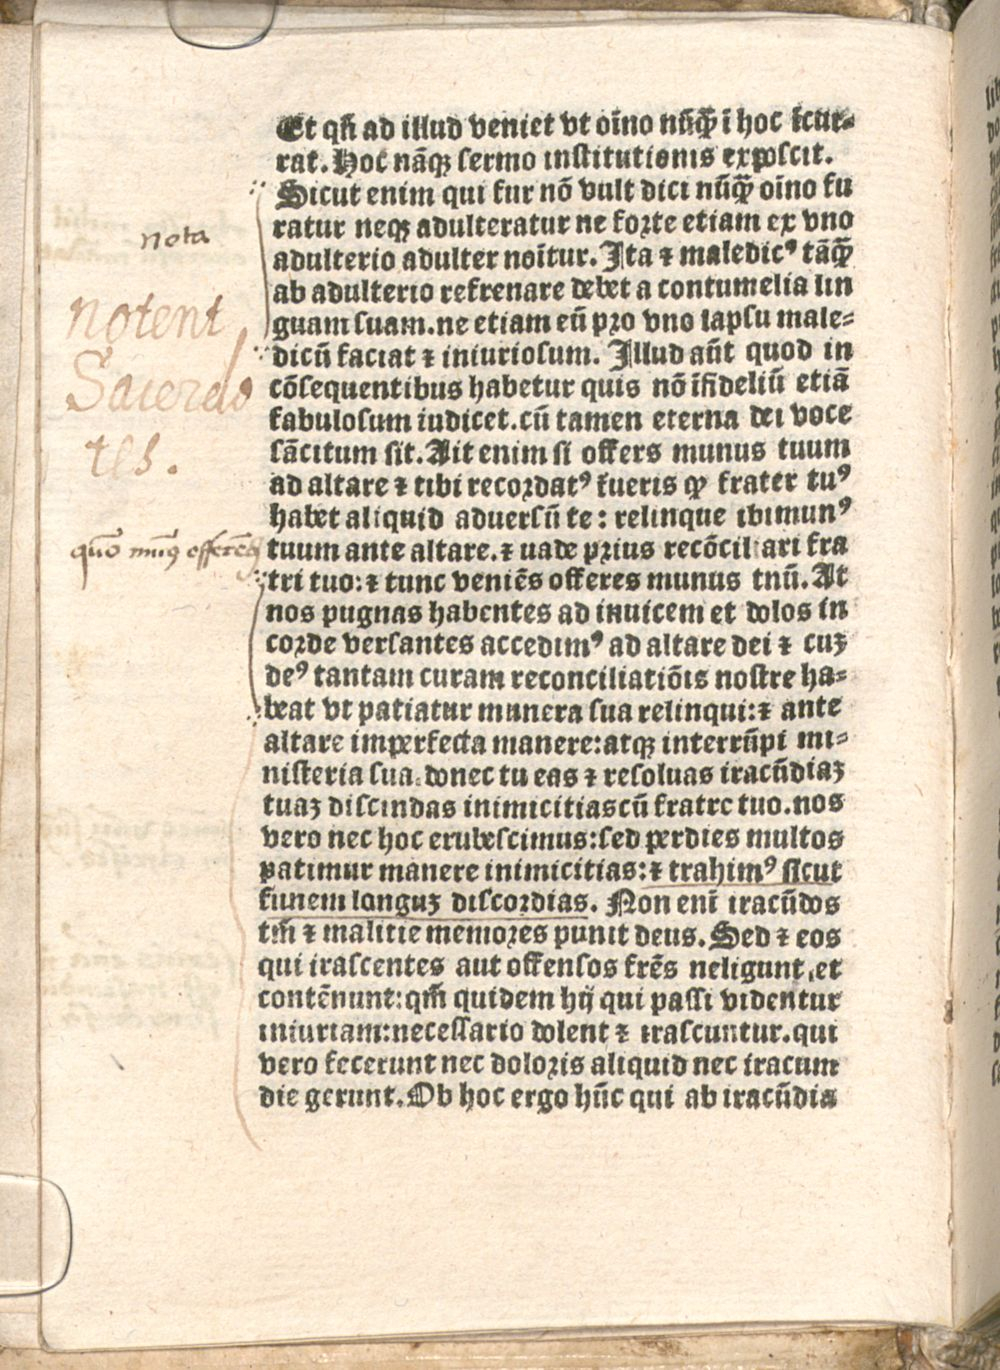 Et qñ ad illud veniet vt oĩno nũꝗ̃ ĩ hoc ĩcur⸗
rat. Hoc nãqꝫ sermo institutionis exposcit.
Sicut enim qui fur nõ vult dici nũꝗ̃ oĩno fu
ratur neqꝫ adulteratur ne forte etiam ex vno
nota
adulterio adulter noĩtur. Ita ⁊ maledicꝰ tãꝗ̃
ab adulterio refrenare debet a contumelia lin
notent
guam suam. ne etiam eũ pro vno lapsu male⸗
dicũ faciat ⁊ iniuriosum. Illud aũt quod in
Sacerdo
cõsequentibus habetur quis nõ ĩfideliũ etiã
fabulosum iudicet. cũ tamen eterna dei voce
tes.
sãcitum sit. Ait enim si offers munus tuum
ad altare ⁊ tibi recordatꝰ fueris ꝙ frater tuꝰ
habet aliquid aduersũ te: relinque ibi munꝰ
tuum ante altare. ⁊ uade prius recõciliari fra
tri tuo: ⁊ tunc veniẽs offeres munus tnũ. At
nos pugnas habentes ad inuicem et dolos in
corde versantes accedimꝰ ad altare dei ⁊ cuꝫ
deꝰ tantam curam reconciliatiõis nostre ha⸗
beat vt patiatur munera sua relinqui: ⁊ ante
altare imperfecta manere: atqꝫ interrũpi mi⸗
nisteria sua. donec tu eas ⁊ resoluas iracũdiaꝫ
tuaꝫ discindas inimicitias cũ fratre tuo. nos
vero nec hoc erubescimus: sed per dies multos
patimur manere inimicitias: ⁊ trahimꝰ sicut
funem longuꝫ discordias. Non enĩ iracũdos
tm̃ ⁊ malitie memores punit deus. Sed ⁊ eos
qui irascentes aut offensos frẽs neligunt et
contẽnunt: qm̃ quidem hij qui passi videntur
iniuriam: necessario dolent ⁊ irascuntur. qui
vero fecerunt nec doloris aliquid nec iracun
die gerunt. Ob hoc ergo hũc qui ab iracũdia